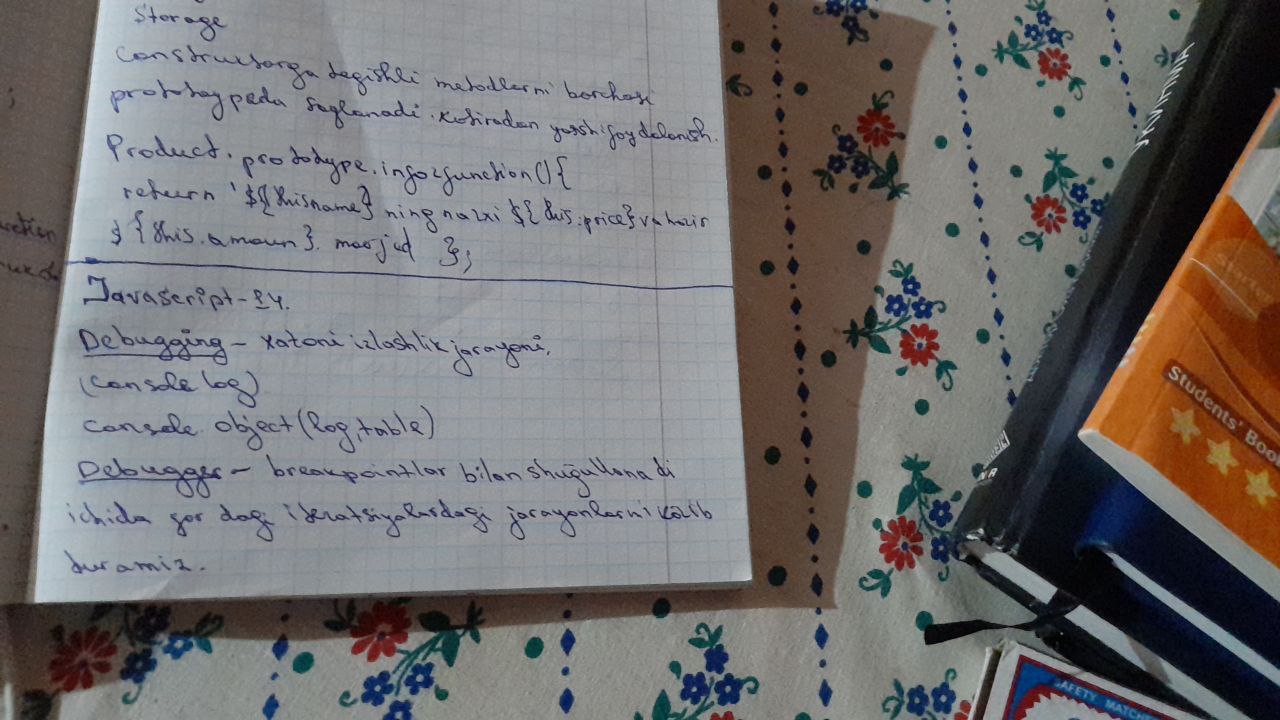 Storage
Constructorga tegishli metodlarni barchasi
prototaypeda saqlanadi. xotiradan yaxshi foydalanish.
Product.prototype.info=function(){
return `${thisname} ning narxi ${this.price} va hozir
${this.amoun}. mavjud };
Javascript-24.
Debugging - xatoni izlashlik jarayoni,
(console log)
console. object (log, table)
Debugger - breakpointlar bilan shuğullanadi
ichida for dagi iteratsiyalardagi jarayonlarni ko'rib
turamiz.
Students' Book
SAFETY MATCH